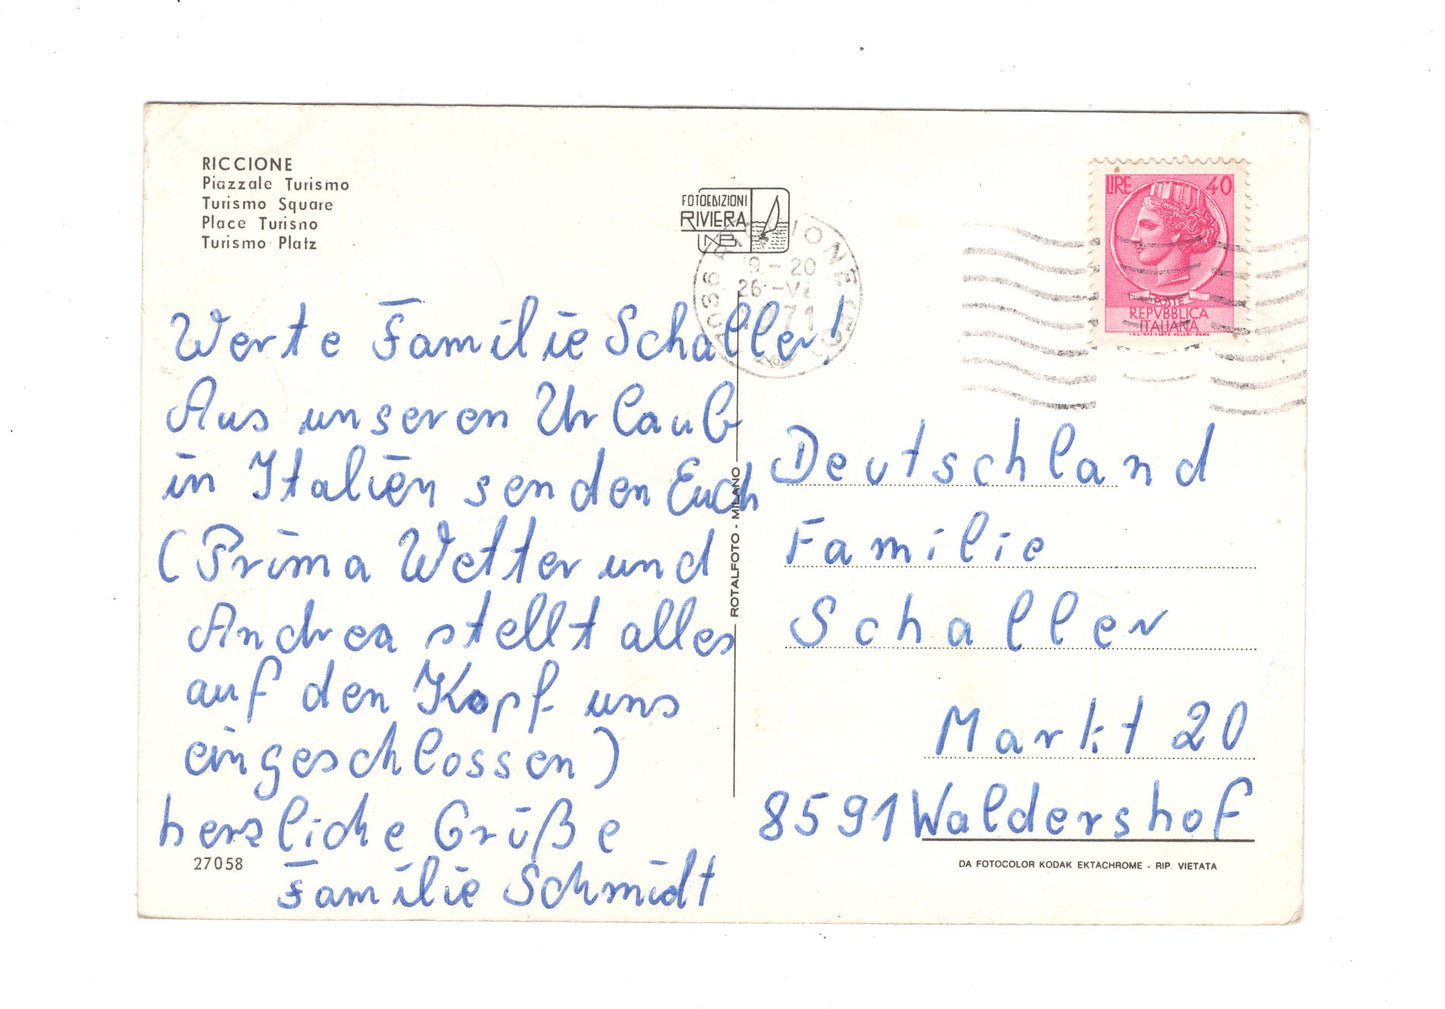 RICCIONE
Piazzale Turismo
Turismo Square
Place Turisno
Turismo Platz
FOTOEDIZIONI
RIVIERA
LIRE 40
POSTE
REPVBBLICA
ITALIANA
19-20
26-VI
71
Werte Familie Schaller!
Aus unseren Urlaub
in Italien senden Euch
(Prima Wetter und
Andrea stellt alles
auf den Kopf uns
eingeschlossen)
herzliche Grüße
Familie Schmidt
27058
ROTALFOTO - MILANO
Deutschland
Familie
Schaller
Markt 20
8591 Waldershof
DA FOTOCOLOR KODAK EKTACHROME - RIP. VIETATA